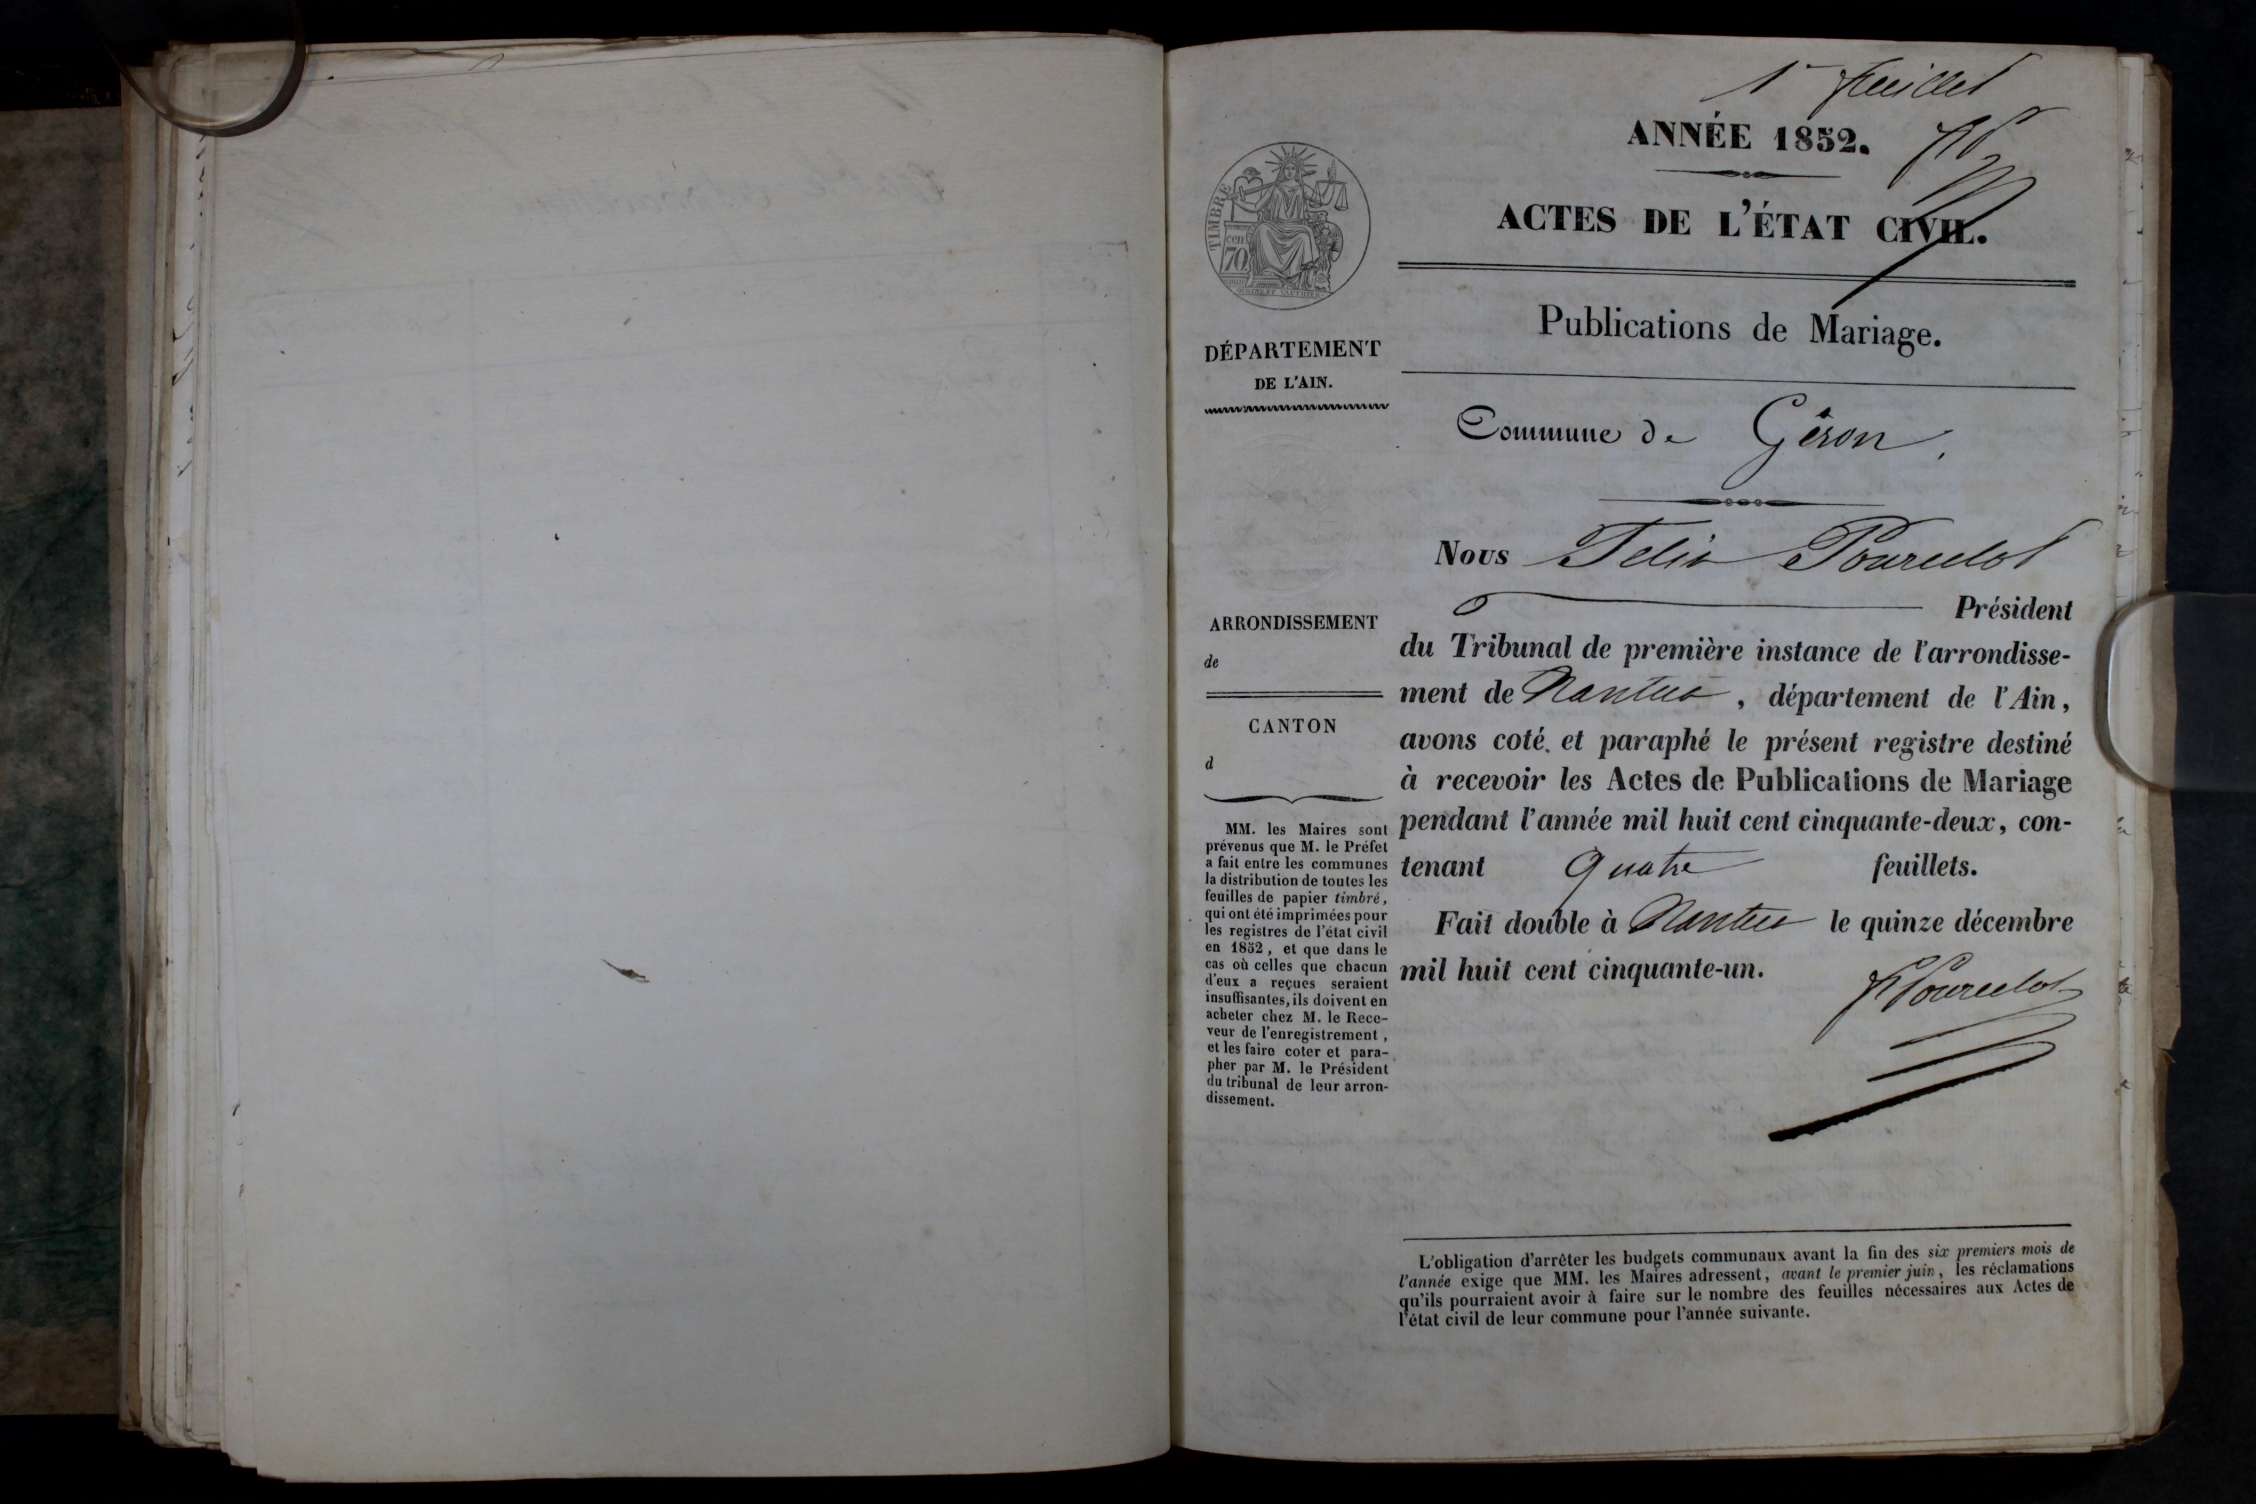 1er feuillet
ANNÉE 1852.
ACTES DE L'ÉTAT CIVIL.
TIMBRE
70
Publications de Mariage.
DÉPARTEMENT
DE L'AIN.
Commune de Géron
Nous Félix Pourcelot
Président
du Tribunal de première instance de l'arrondisse-
ment de Nantua, département de l'Ain,
avons coté et paraphé le présent registre destiné
à recevoir les Actes de Publications de Mariage
pendant l'année mil huit cent cinquante-deux, con-
tenant quatre feuillets.
Fait double à Nantua le quinze décembre
mil huit cent cinquante-un.
FPourcelot
ARRONDISSEMENT
de
CANTON
d
MM. les Maires sont
prévenus que M. le Préfet
a fait entre les communes
la distribution de toutes les
feuilles de papier timbré,
qui ont été imprimées pour
les registres de l'état civil
en 1852, et que dans le
cas où celles que chacun
d'eux a reçues seraient
insuffisantes, ils doivent en
acheter chez M. le Rece-
veur de l'enregistrement,
et les faire coter et para-
pher par M. le Président
du tribunal de leur arron-
dissement.
L'obligation d'arrêter les budgets communaux avant la fin des six premiers mois de
l'année exige que MM. les Maires adressent, avant le premier juin, les réclamations
qu'ils pourraient avoir à faire sur le nombre des feuilles nécessaires aux Actes de
l'état civil de leur commune pour l'année suivante.